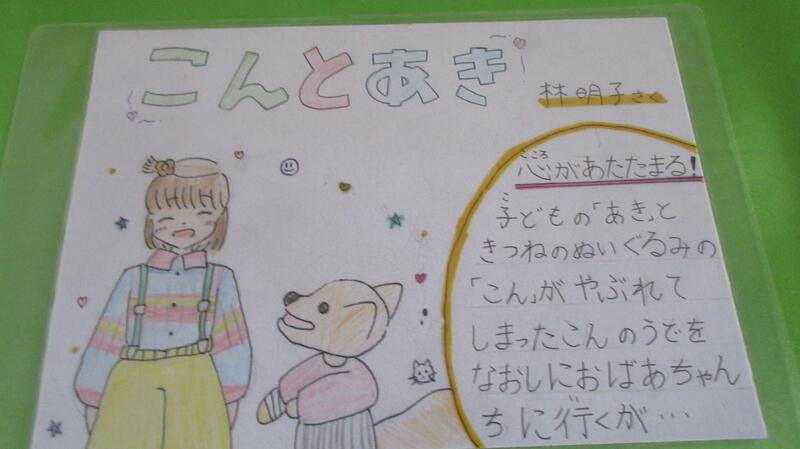 こんとあき
林明子さく
心があたたまる!
こころ
子どもの「あき」と
こ
きつねのぬいぐるみの
「こん」が やぶれて
しまったこんのうでを
なおしにおばあちゃん
ちに行くが…